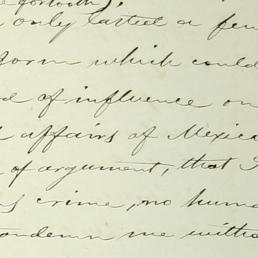 forsooth);
only lasted a few
form which could
d of influence on
affairs of Mexico
of argument, that I
s crime, no human
condemn me witho